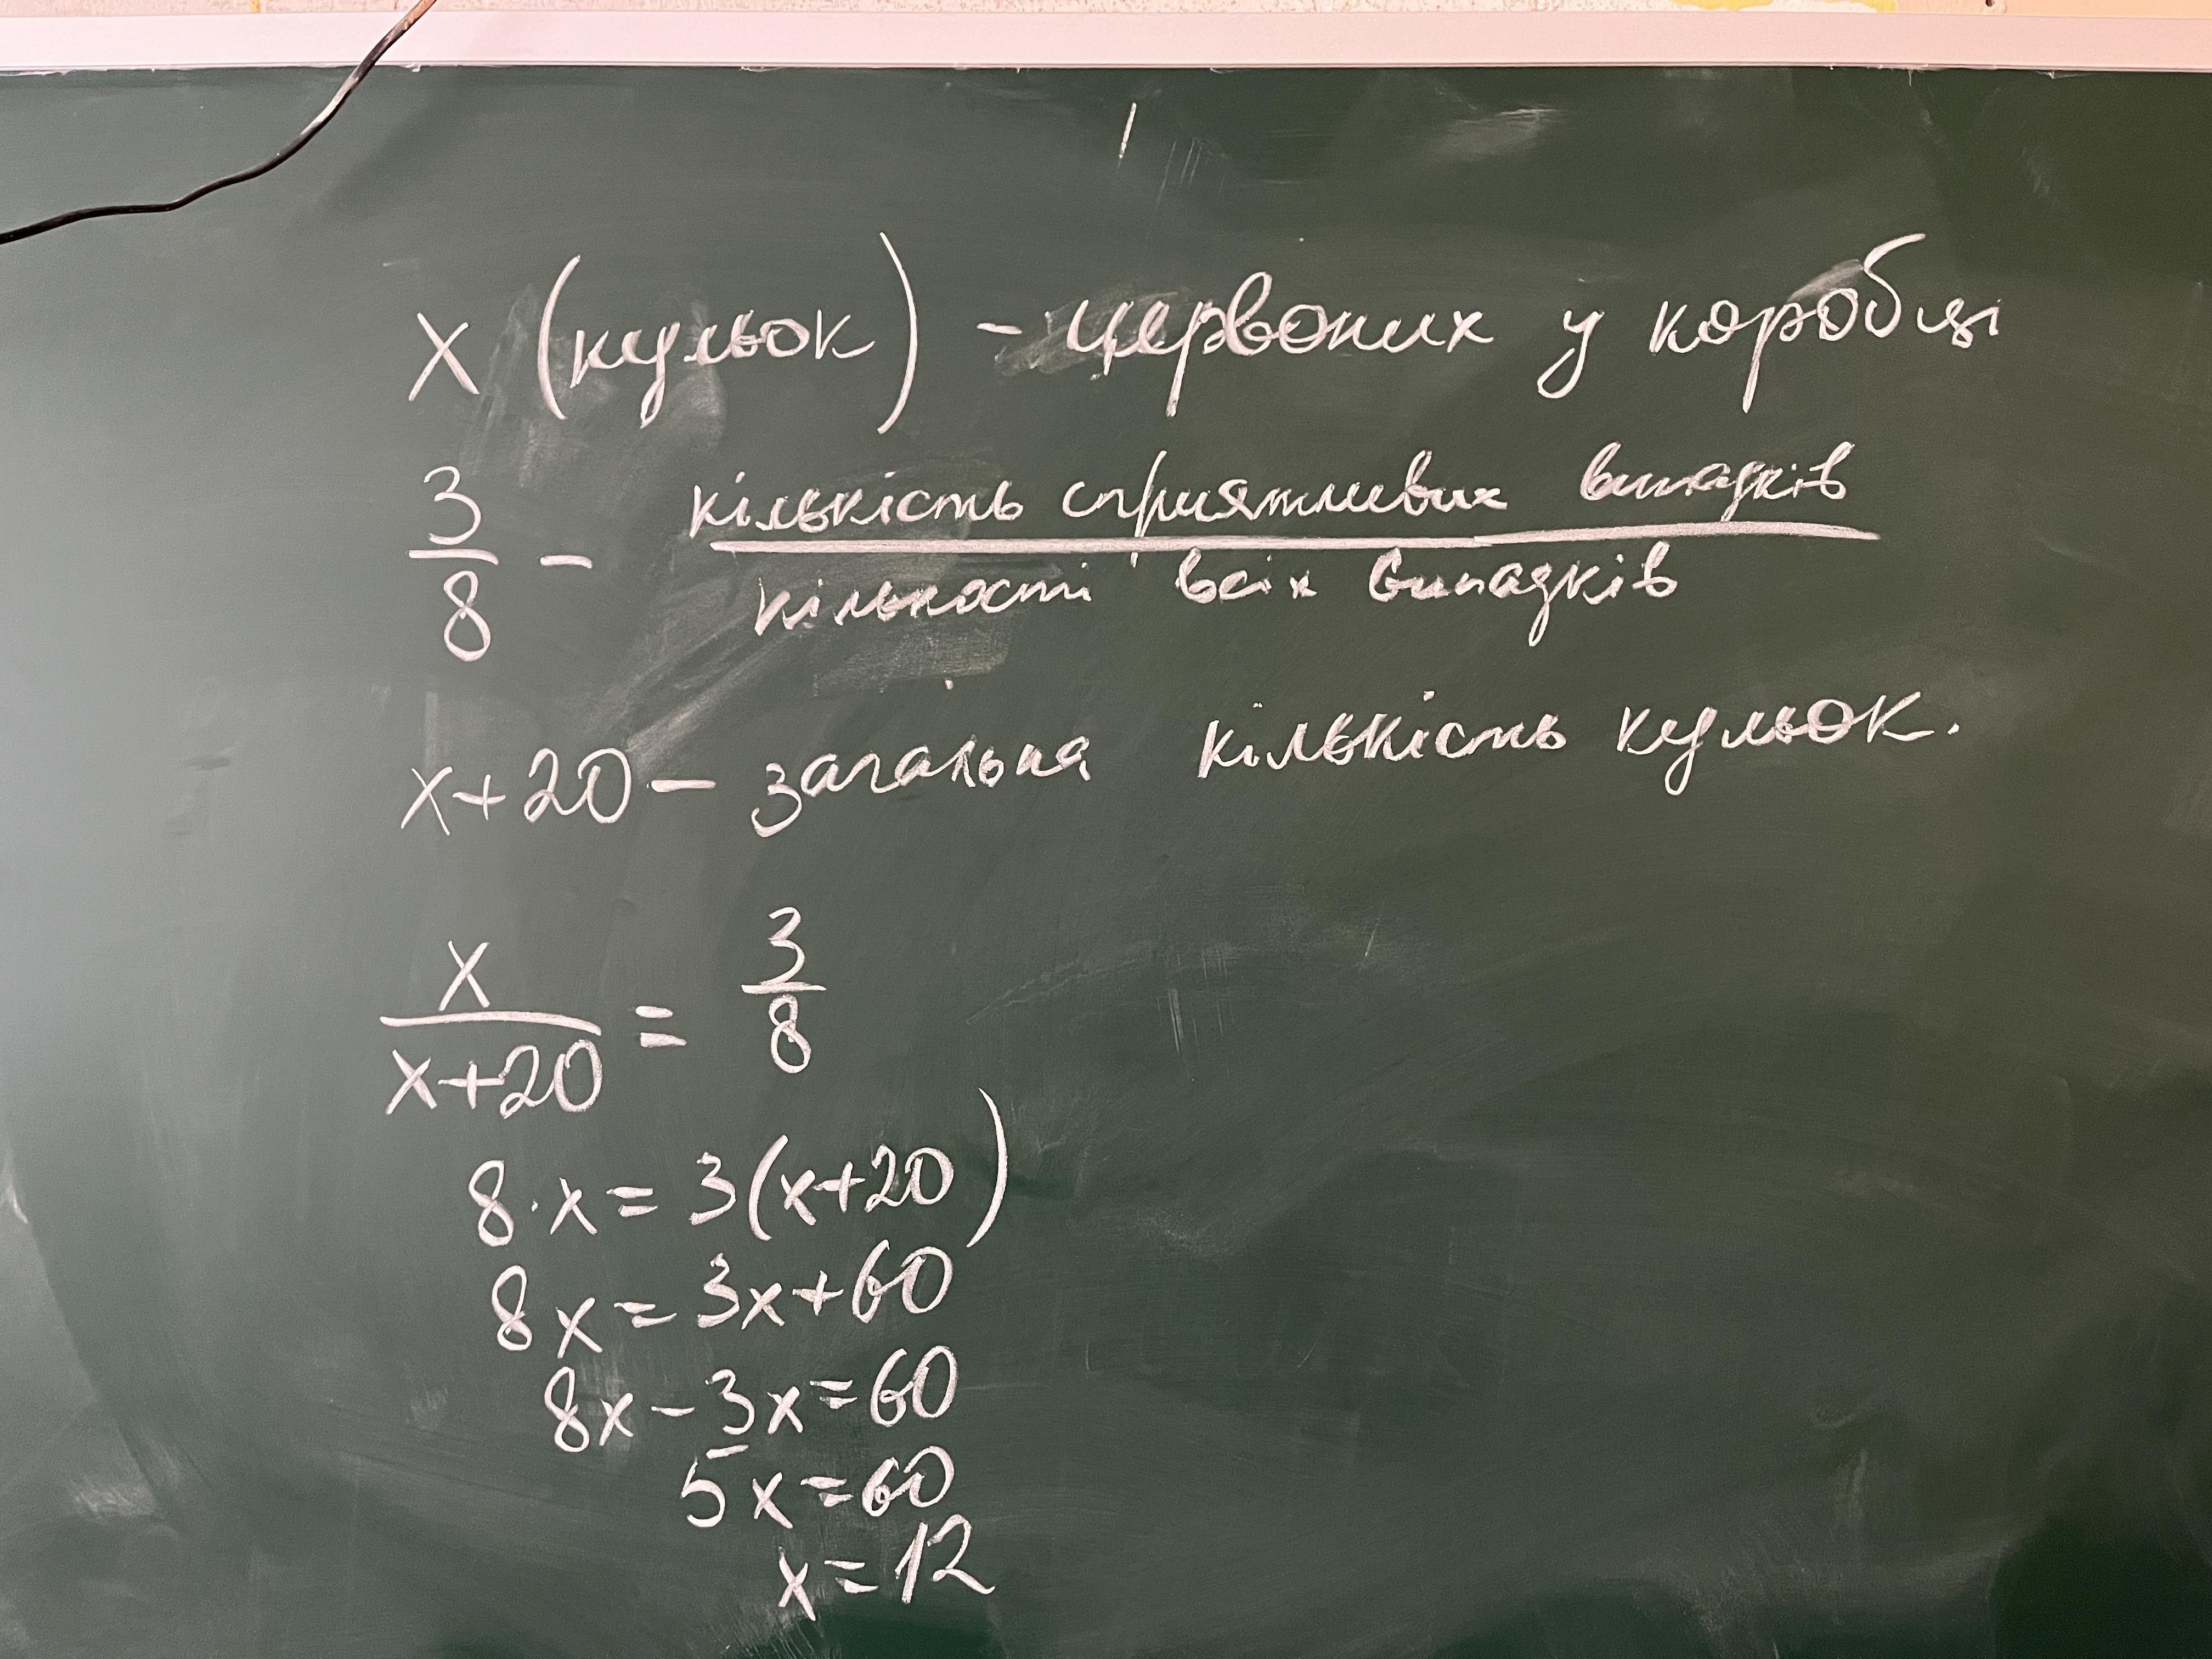 x (кульок) - червоних у коробці
3/8 - кількість сприятливих випадків / кількості всіх випадків
x+20 - загальна кількість кульок.
x/(x+20) = 3/8
8·x = 3(x+20)
8x = 3x+60
8x - 3x = 60
5x = 60
x = 12